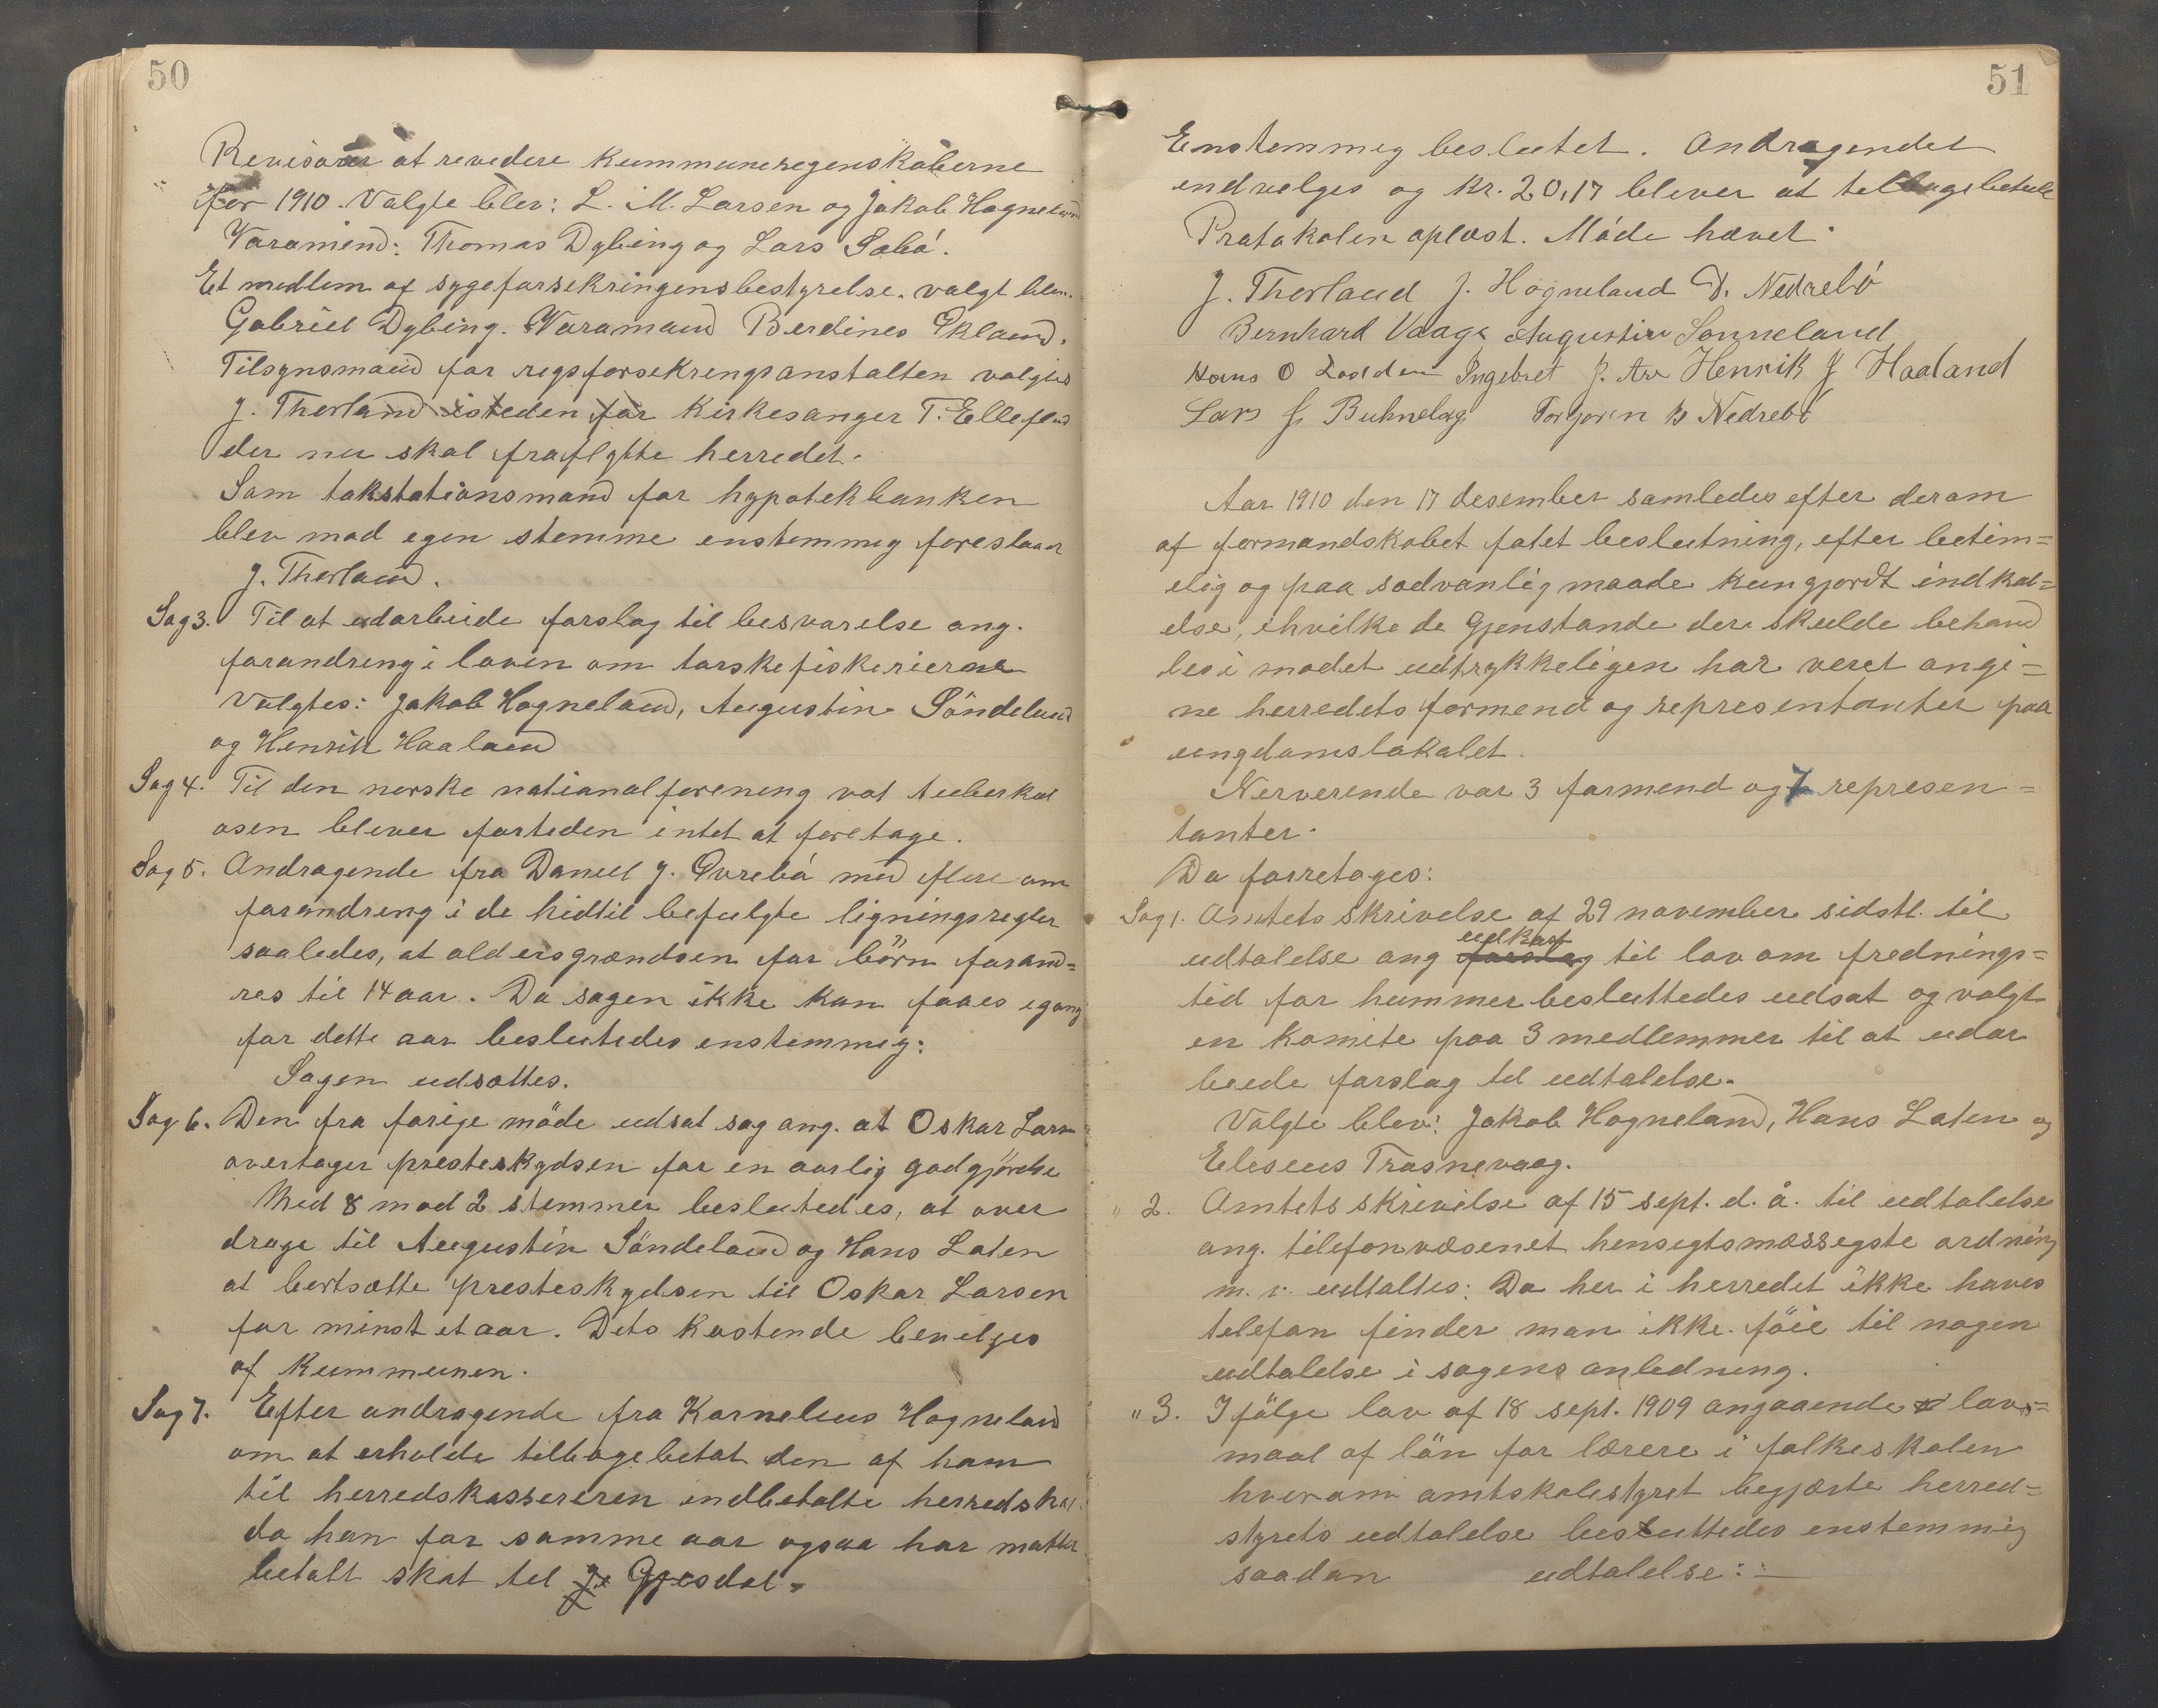 50
Revisorer at revedere kummuneregenskaberne
for 1910. Valgte blev: L. M. Larsen og Jakob Hogneland
Varamend: Thomas Dybing og Lars Sabó.
Et medlem af sygeforsekringensbestyrelse. valgt blev.
Gabriel Dybing. Varamand Berdines Økland.
Tilsynsmand for regsforsekrengsanstalten valgtes
J. Therland isteden for Kirkesanger T. Ellefsen
der nu skal fraflytte herredet.
Som takstationsmand for hypotekbanken
blev mod egen stemme enstemmig foreslaar
J. Therland.
Sag 3. Til at udarbeide forslag til besvarelse ang.
forandreng i loven om torskefiskerierne
Valgtes: Jakob Hogneland, Augustin Söndeland
og Henrik Haaland
Sag 4. Til den norske nationalforening vot tuberkul
osen blever forteden intet at foretage.
Sag 5. Andragende fra Daneel J. Øvrebó med flere om
forandreng i de hidtil befulgte ligningsregler
saaledes, at aldersgrændsen for börn forand=
res til 14 aar. Da sagen ikke kan faaes igang
for dette aar beslutedes enstemmig:
Sagen udsættes.
Sag 6. Den fra forige möde udsat sag ang. at Oskar Larsen
overtager presteskydsen for en aarlig godgjörelse
Med 8 mod 2 stemmer beslutedes, at over
drage til Augustin Söndeland og Hans Laten
at bortsætte presteskydsen til Oskar Larsen
for minst et aar. Dets kostende bevilges
af kummunen.
Sag 7. Efter andragende fra Karnelius Hogneland
om at erholde telbagebetalt den af ham
til herredskassereren indbetalte herredskat
da han for samme aar ogsaa har mattet
betalt skat tel Gjesdal.
51
Enstemmeg beslutet. Andragendet
indvelges og kr. 20,17 blever at telbagebetale
Protokolen oplæst. Móde hævet.
J. Therland J. Hogneland D. Nedrebó
Bernhard Vaage Augustin Sonneland
Hans O Lodden Ingebret J. Are Henrik J Haaland
Lars J. Torjorn B Nedrebó
Aar 1910 den 17 desember samledes efter derom
af formandskabet fatet beslutning, efter betim=
elig og paa sedvanlig maade kungjordt indkal=
else, ihvilke de Gjenstande der skulde behand
les i modet udtrykkeligen har veret angi=
ne herredets formend og representanter paa
ungdomslokalet.
Nerverende var 3 formend og 7 represen=
tanter.
Da forretoges:
Sag 1. Amtets skrivelse af 29 november sidstl. til
udtalelse ang forslag udkast til lov om frednings=
tid for hummer besluttedes udsat og valgt
en komite paa 3 medlemmer til at udar
beide forslag tel udtalelse.
Valgte blev: Jakob Hogneland, Hans Laten og
Eleseus Trosnevaag.
" 2. Amtets skrivelse af 15 sept. d. å. til udtalelse
ang. tilefonvæsenet hensegtsmæssegste ordning
m. v. udtaltes: Da her i herredet ikke haves
telefon finder man ikke föie til nogen
udtalelse i sagens anledning.
" 3. I fölge lov af 18 sept. 1909 angaaende lovs=
maal af lön for lærere i folkeskolen
hverom amtskolestyret begjærte herred=
styrets udtalelse besluttedes enstemmig
saadan udtalelse: